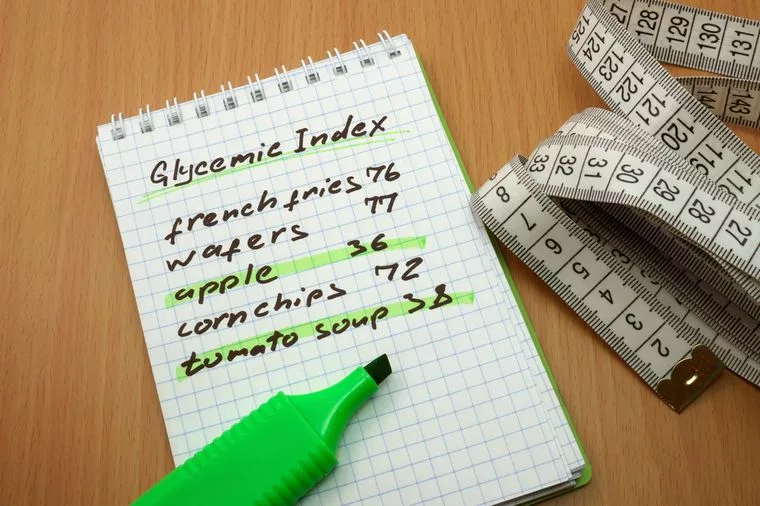 Glycemic Index
french fries 76
wafers 77
apple 36
corn chips 72
tomato soup 38
127 128 129 130 131
125 124 123 122 121 120 119
143
33 32 31 30 29 28 27
8 7 6 5 4 3 2